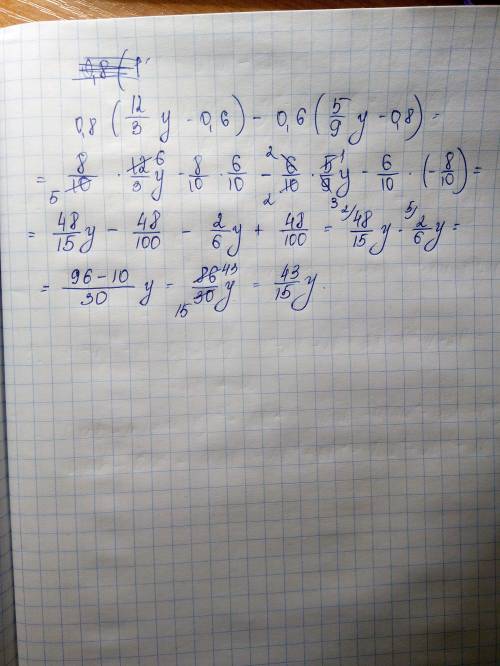 0,8 (
0,8 (12/3 y - 0,6) - 0,6 (5/9 y - 0,8) =
= 8/10 · 12/3 y - 8/10 · 6/10 - 6/10 · 5/9 y - 6/10 · (-8/10) =
= 48/15 y - 48/100 - 2/6 y + 48/100 = 48/15 y - 2/6 y =
= 96-10/30 y = 86/30 y = 43/15 y.